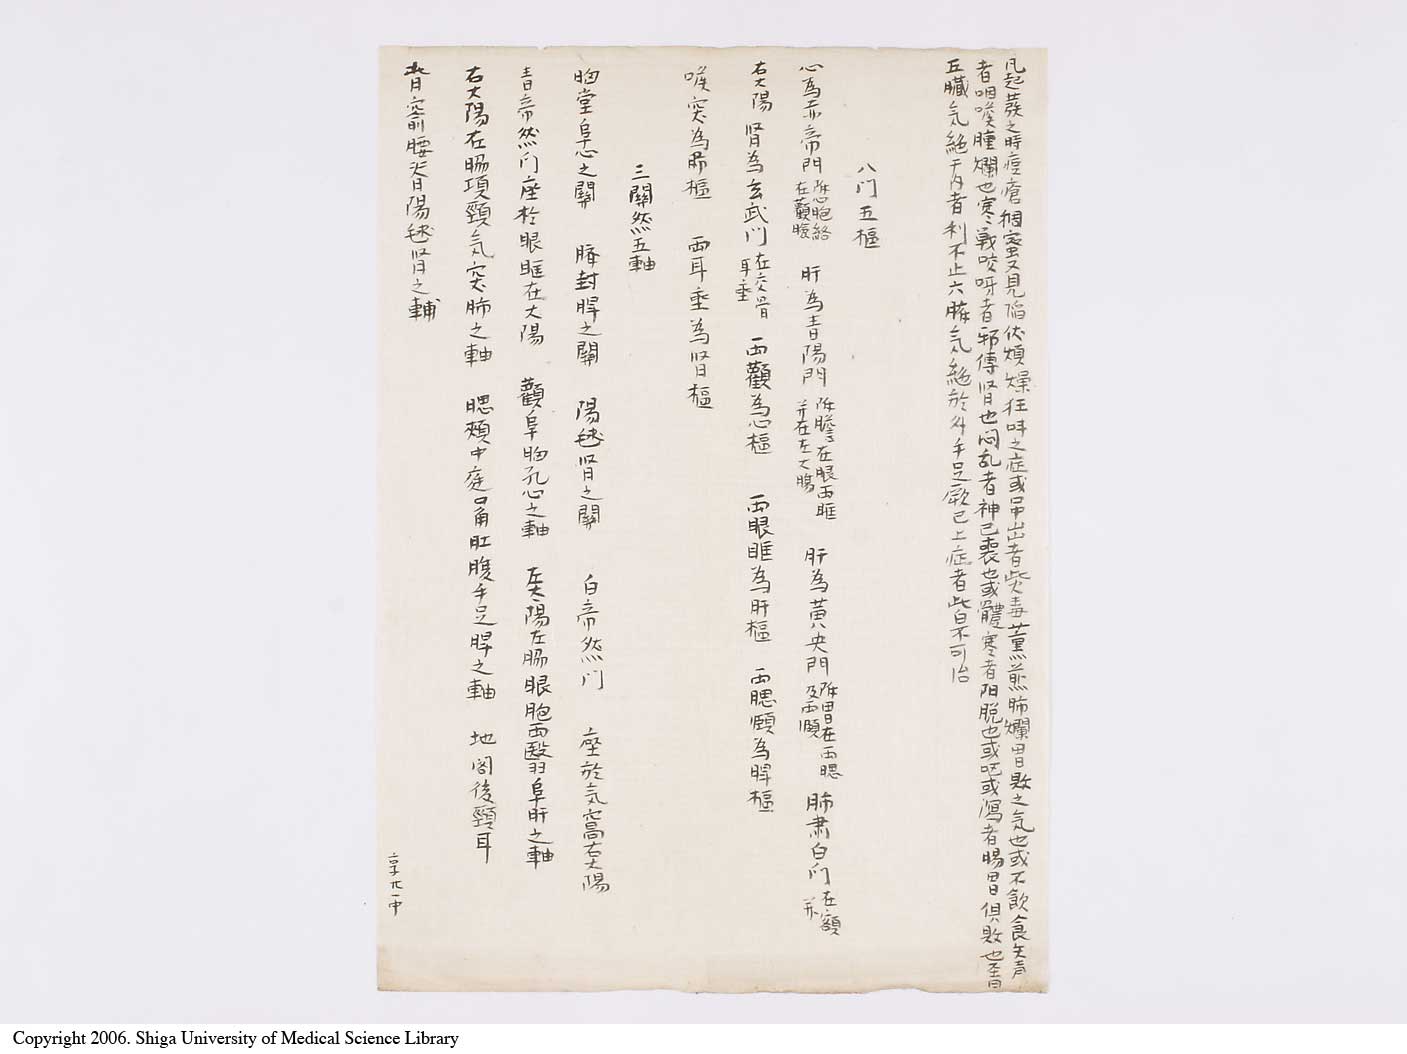 凡起發之時痘瘡稠蜜又見陷伏煩燥狂叫之症或吊出者此毒薰蒸肺爛胃敗之気也或不飲食失声
者咽喉腫爛也寒戰咬呀者邪傳肾也悶乱者神已喪也或體寒者阳脱也或吐或瀉者腸胃俱敗也至曰
五臟気絕于内者利不止六腑気絕於外手足厥已上症者此皆不可治
八门五樞
心為赤帝門 胞絡在顴腹 肝為青陽門 膽在眼両眶并在左大陽 肝為黄央門 胃在両腮及両頤 肺肅白门 在額并
右大陽 肾為玄武门 在交骨耳垂 両顴為心樞 両眼眶為肝樞 両腮頤為脾樞
喉突為肺樞 両耳垂為肾樞
三關然五軸
胸堂阜心之關 臍封脾之關 陽毬肾之關 白帝然门 座於気窩右大陽
青帝然门座於眼眶在大陽 顴阜胸孔心之軸 左大陽左肠眼胞両翳羽阜肝之軸
右大陽在肠項頸気突肺之軸 腮頰中庭口角肚腹手足脾之軸 地閣後頸耳
背窬腰脊陽毬肾之輔